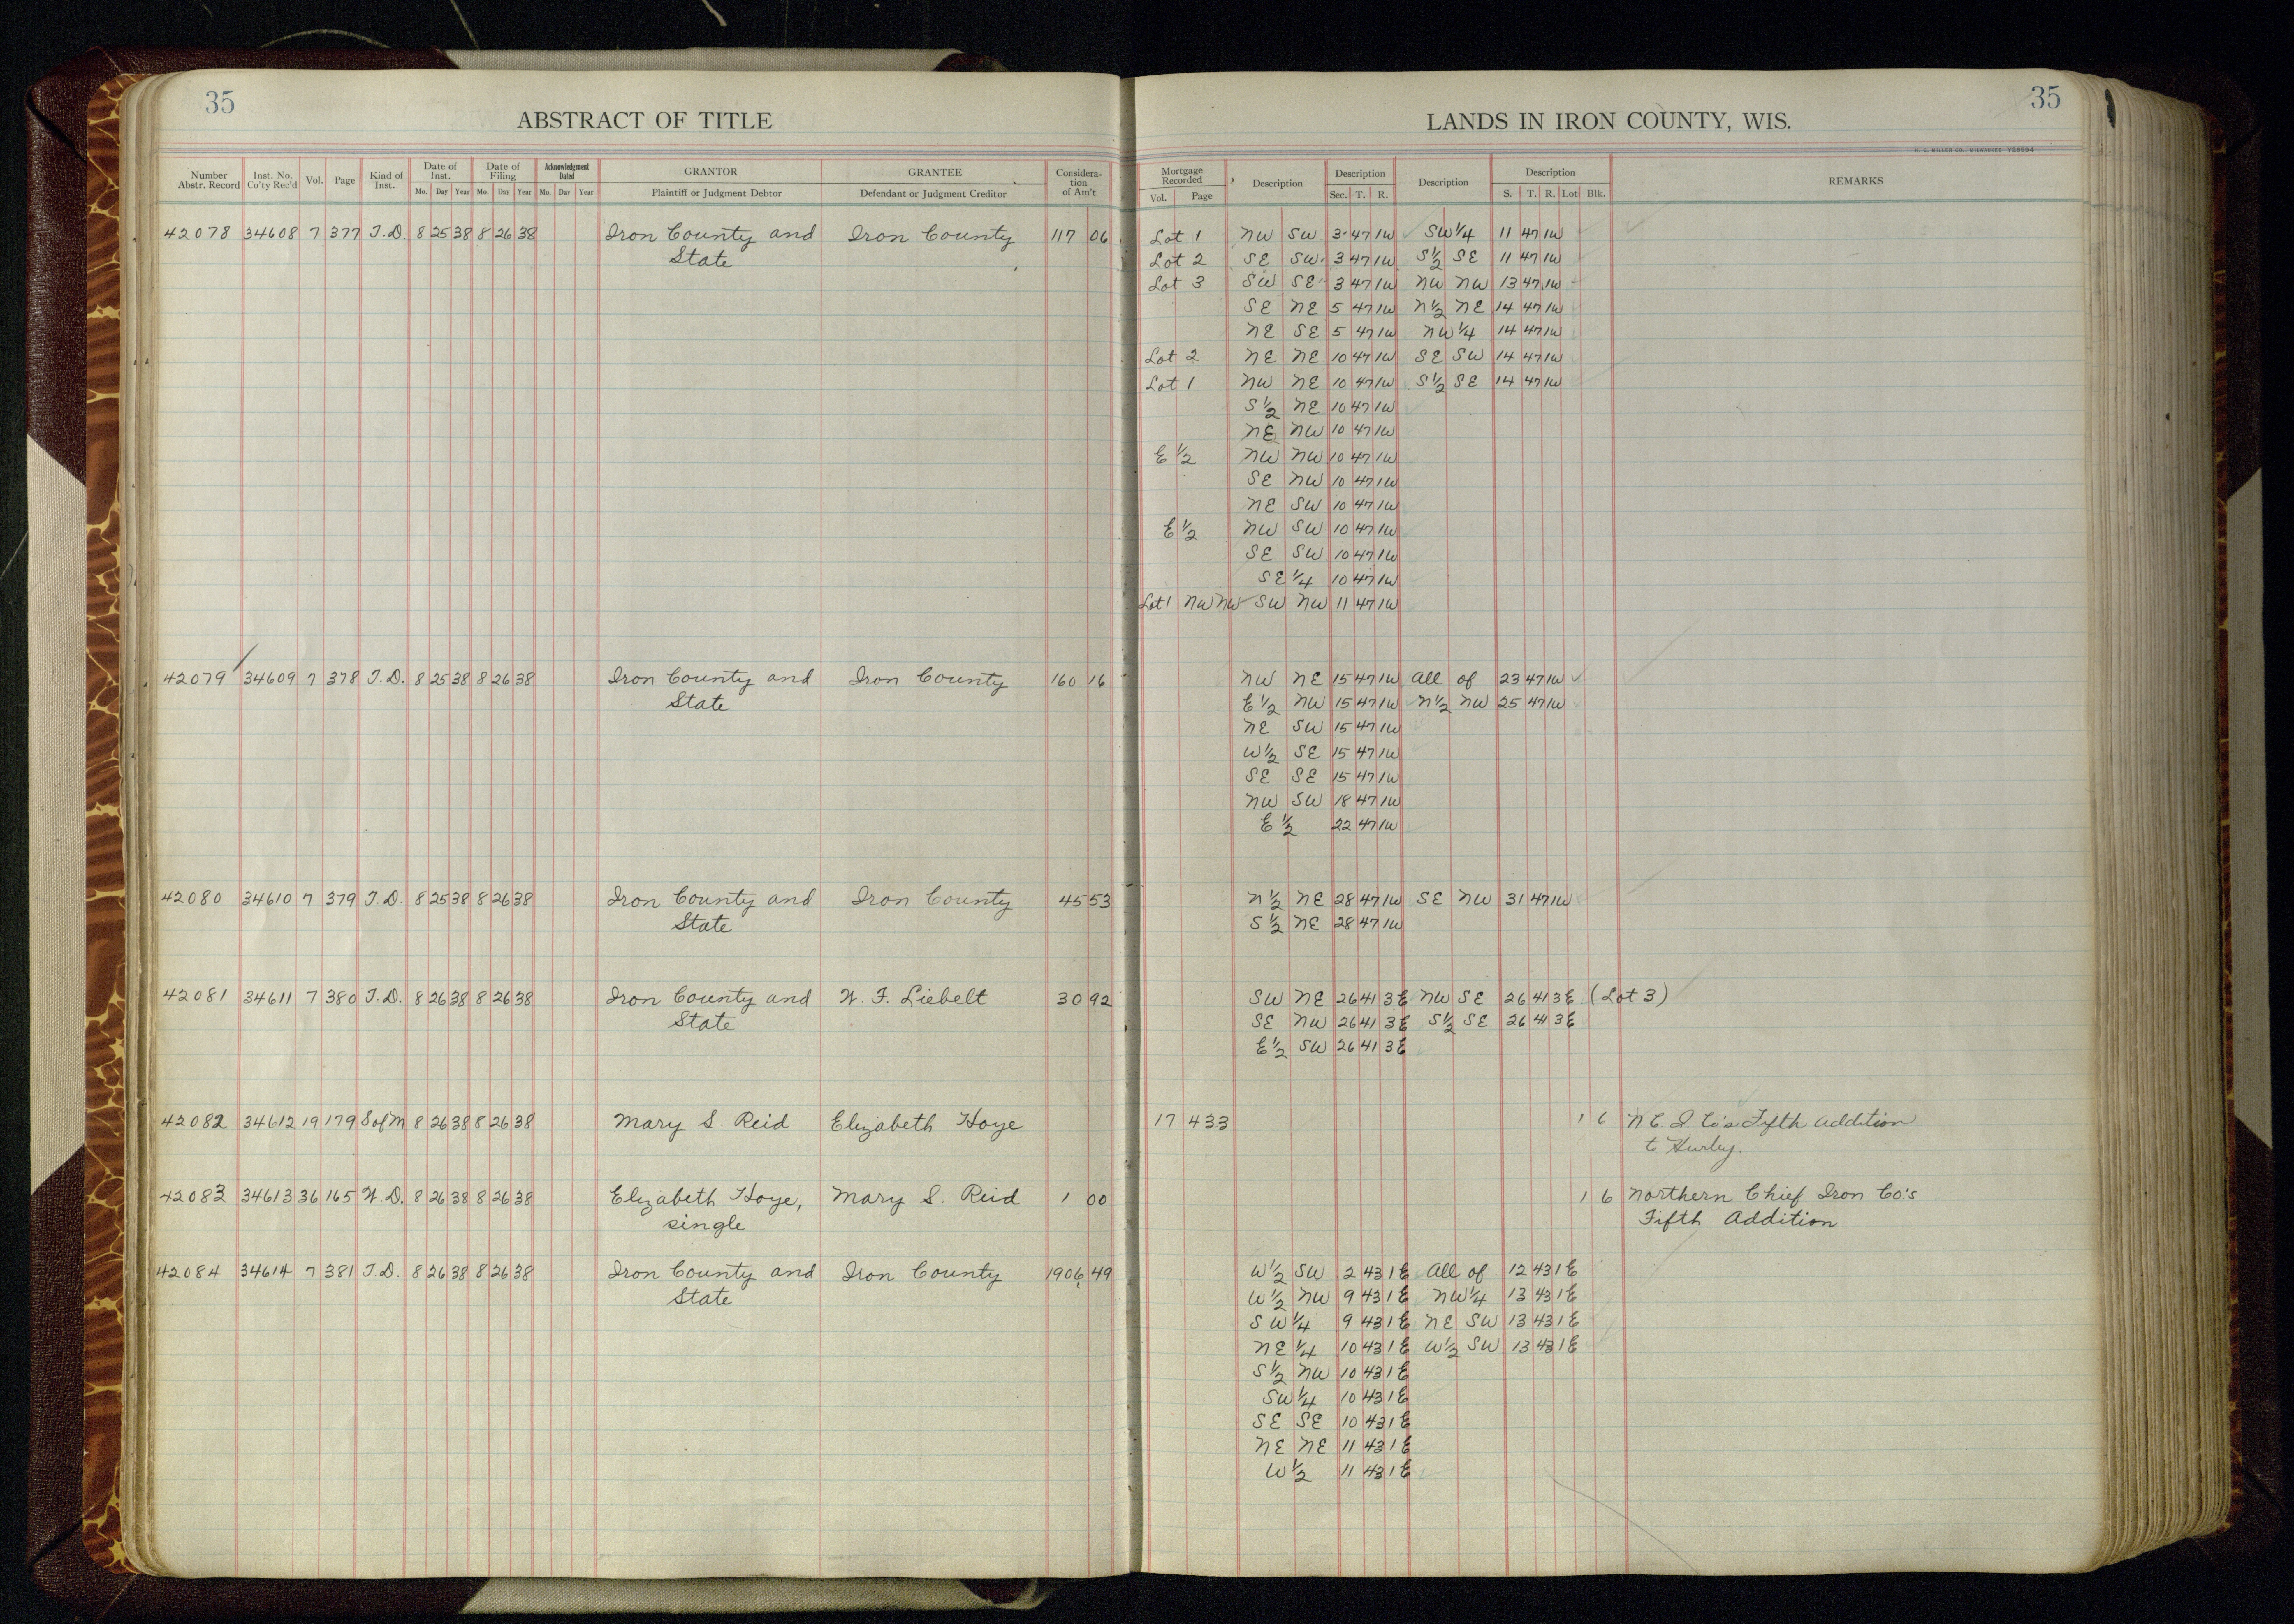 35
ABSTRACT OF TITLE
Number Abstr. Record Inst. No. Co'ty Rec'd Vol. Page Kind of Inst. Date of Inst. Mo. Day Year Date of Filing Mo. Day Year Acknowledgment Dated Mo. Day Year GRANTOR Plaintiff or Judgment Debtor GRANTEE Defendant or Judgment Creditor Considera-tion of Am't
42078 34608 7 377 T.D. 8 25 38 8 26 38 Iron County and Iron County 117 06
State
42079 34609 7 378 T.D. 8 25 38 8 26 38 Iron County and Iron County 160 16
State
42080 34610 7 379 T.D. 8 25 38 8 26 38 Iron County and Iron County 45 53
State
42081 34611 7 380 T.D. 8 26 38 8 26 38 Iron County and W. F. Liebelt 30 92
State
42082 34612 19 179 S of M 8 26 38 8 26 38 Mary S. Reid Elizabeth Hoye
42083 34613 36 165 W.D. 8 26 38 8 26 38 Elizabeth Hoye, Mary S. Reid 1 00
single
42084 34614 7 381 T.D. 8 26 38 8 26 38 Iron County and Iron County 1906 49
State
35
LANDS IN IRON COUNTY, WIS.
H. C. MILLER CO., MILWAUKEE
Mortgage Recorded Vol. Page Description Description Sec. T. R. Description Description S. T. R. Lot Blk. REMARKS
Lot 1 NW SW 3 47 1W SW 1/4 11 47 1W
Lot 2 SE SW 3 47 1W S 1/2 SE 11 47 1W
Lot 3 SW SE 3 47 1W NW NW 13 47 1W
SE NE 5 47 1W N 1/2 NE 14 47 1W
NE SE 5 47 1W NW 1/4 14 47 1W
Lot 2 NE NE 10 47 1W SE SW 14 47 1W
Lot 1 NW NE 10 47 1W S 1/2 SE 14 47 1W
S 1/2 NE 10 47 1W
NE NW 10 47 1W
E 1/2 NW NW 10 47 1W
SE NW 10 47 1W
NE SW 10 47 1W
E 1/2 NW SW 10 47 1W
SE SW 10 47 1W
SE 1/4 10 47 1W
Lot 1 NW NW SW NW 11 47 1W
NW NE 15 47 1W All of 23 47 1W
E 1/2 NW 15 47 1W N 1/2 NW 25 47 1W
NE SW 15 47 1W
W 1/2 SE 15 47 1W
SE SE 15 47 1W
NW SW 18 47 1W
E 1/2 22 47 1W
N 1/2 NE 28 47 1W SE NW 31 47 1W
S 1/2 NE 28 47 1W
SW NE 26 41 3E NW SE 26 41 3E (Lot 3)
SE NW 26 41 3E S 1/2 SE 26 41 3E
E 1/2 SW 26 41 3E
17 433 1 6 N.C.I. Co's Fifth Addition
to Hurley.
1 6 Northern Chief Iron Co.'s
Fifth Addition
W 1/2 SW 2 43 1E All of 12 43 1E
W 1/2 NW 9 43 1E NW 1/4 13 43 1E
SW 1/4 9 43 1E NE SW 13 43 1E
NE 1/4 10 43 1E W 1/2 SW 13 43 1E
S 1/2 NW 10 43 1E
SW 1/4 10 43 1E
SE SE 10 43 1E
NE NE 11 43 1E
W 1/2 11 43 1E